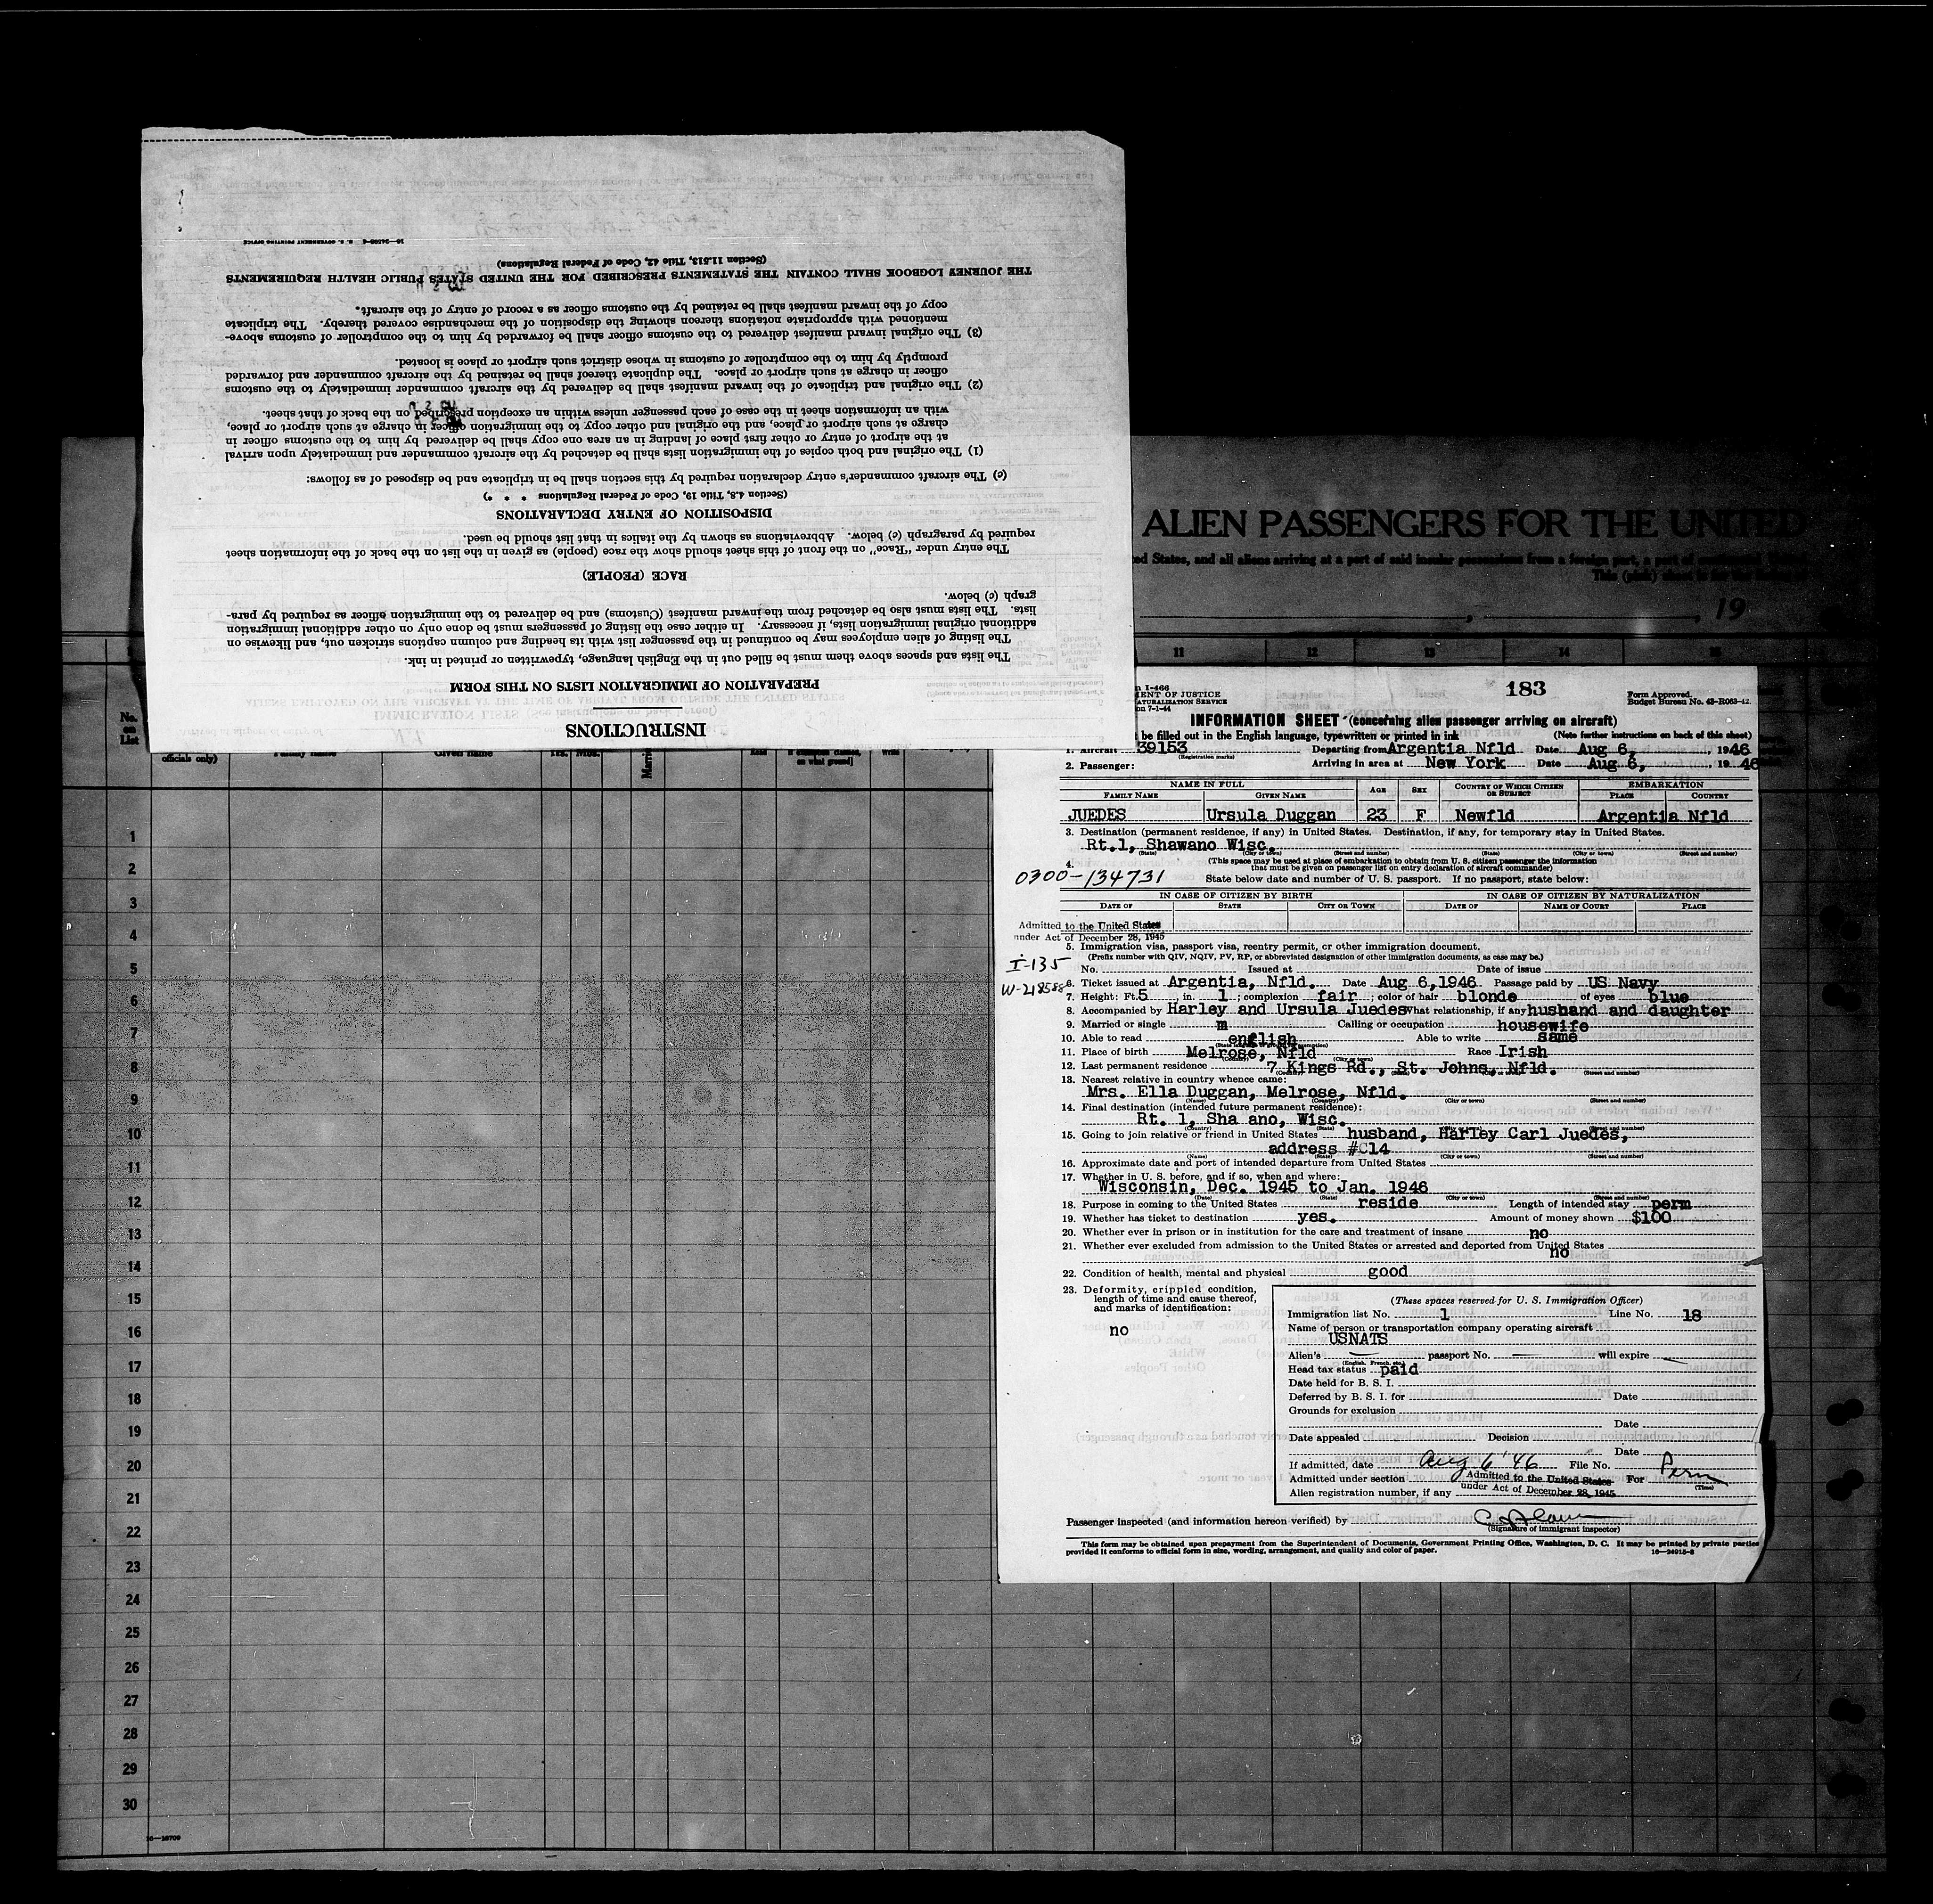 INSTRUCTIONS
PREPARATION OF IMMIGRATION LISTS ON THIS FORM
The lists and spaces above them must be filled out in the English language, typewritten or printed in ink.
The listing of alien employees may be continued in the passenger list with its heading and column captions stricken out, and likewise on
additional original immigration lists, if necessary. In either case the listing of passengers must be done only on other additional immigration
lists. The lists must also be detached from the inward manifest (Customs) and be delivered to the immigration officer as required by para-
graph (c) below.
RACE (PEOPLE)
The entry under "Race" on the front of this sheet should show the race (people) as given in the list on the back of the information sheet
required by paragraph (c) below. Abbreviations as shown by the italics in that list should be used.
DISPOSITION OF ENTRY DECLARATIONS
(Section 4.8, Title 19, Code of Federal Regulations * * *)
(c) The aircraft commander's entry declaration required by this section shall be in triplicate and be disposed of as follows:
(1) The original and both copies of the immigration lists shall be detached by the aircraft commander and immediately upon arrival
at the airport of entry or other first place of landing in an area one copy shall be delivered by him to the customs officer in
charge at such airport or place, and the original and other copy to the immigration officer in charge at such airport or place,
with an information sheet in the case of each passenger unless within an exception prescribed on the back of that sheet.
(2) The original and triplicate of the inward manifest shall be delivered by the aircraft commander immediately to the customs
officer in charge at such airport or place. The duplicate thereof shall be retained by the aircraft commander and forwarded
promptly by him to the comptroller of customs in whose district such airport or place is located.
(3) The original inward manifest delivered to the customs officer shall be forwarded by him to the comptroller of customs above-
mentioned with appropriate notations thereon showing the disposition of the merchandise covered thereby. The triplicate
copy of the inward manifest shall be retained by the customs officer as a record of entry of the aircraft.
THE JOURNEY LOGBOOK SHALL CONTAIN THE STATEMENTS PRESCRIBED FOR THE UNITED STATES PUBLIC HEALTH REQUIREMENTS
(Section 11.513, Title 42, Code of Federal Regulations)
U. S. GOVERNMENT PRINTING OFFICE
ALIEN PASSENGERS FOR THE UNITED
ted States, and all aliens arriving at a port of said insular possessions from a foreign port, a port of
This (pink) sheet is for the
, 19
11 12 13 14 15
No. on List
officials only)
Family name
Given name
Yrs. Mos.
Read
Write
on what ground]
1
2
3
4
5
6
7
8
9
10
11
12
13
14
15
16
17
18
19
20
21
22
23
24
25
26
27
28
29
30
16—18709
183
I-466
MENT OF JUSTICE
NATURALIZATION SERVICE
7-1-44
Form Approved.
Budget Bureau No. 43-R063-42.
INFORMATION SHEET (concerning alien passenger arriving on aircraft)
be filled out in the English language, typewritten or printed in ink (Note further instructions on back of this sheet)
1. Aircraft 39153 (Registration marks) Departing from Argentia Nfld Date Aug 6, , 1946
2. Passenger: Arriving in area at New York Date Aug 6, , 19 46
NAME IN FULL AGE SEX COUNTRY OF WHICH CITIZEN OR SUBJECT EMBARKATION
FAMILY NAME GIVEN NAME PLACE COUNTRY
JUEDES Ursula Duggan 23 F Newfld Argentia Nfld
3. Destination (permanent residence, if any) in United States. Destination, if any, for temporary stay in United States.
Rt.1, Shawano Wisc.
(State) (City or town) (Street and number) (State) (City or town) (Street and number)
4. (This space may be used at place of embarkation to obtain from U. S. citizen passenger the information
that must be given on passenger list on entry declaration of aircraft commander)
0300-134731 State below date and number of U. S. passport. If no passport, state below:
IN CASE OF CITIZEN BY BIRTH IN CASE OF CITIZEN BY NATURALIZATION
DATE OF STATE CITY OR TOWN DATE OF NAME OF COURT PLACE
Admitted to the United States
under Act of December 28, 1945
5. Immigration visa, passport visa, reentry permit, or other immigration document.
(Prefix number with QIV, NQIV, PV, RP, or abbreviated designation of other immigration documents, as case may be.)
I-135 No. Issued at Date of issue
W-218588
6. Ticket issued at Argentia, Nfld. Date Aug 6,1946 Passage paid by US Navy
7. Height: Ft. 5 in. 1 ; complexion fair ; color of hair blonde of eyes blue
8. Accompanied by Harley and Ursula Juedes What relationship, if any husband and daughter
9. Married or single m Calling or occupation housewife
10. Able to read english Able to write same
11. Place of birth Melrose, Nfld Race Irish
(Country) (City or town)
12. Last permanent residence 7 Kings Rd., St. Johns, Nfld.
(Street and number)
13. Nearest relative in country whence came:
Mrs. Ella Duggan, Melrose, Nfld.
(Name) (Country) (City or town) (Street and number)
14. Final destination (intended future permanent residence):
Rt. 1, Sha ano, Wisc.
(Country) (State) (City or town) (Street and number)
15. Going to join relative or friend in United States husband, Harley Carl Juedes,
address #C14
(Name) (State) (City or town) (Street and number)
16. Approximate date and port of intended departure from United States
17. Whether in U. S. before, and if so, when and where:
Wisconsin, Dec. 1945 to Jan. 1946
(Date) (State) (City or town) (Street and number)
18. Purpose in coming to the United States reside Length of intended stay perm
19. Whether has ticket to destination yes. Amount of money shown $100
20. Whether ever in prison or in institution for the care and treatment of insane no
21. Whether ever excluded from admission to the United States or arrested and deported from United States
no
22. Condition of health, mental and physical good
23. Deformity, crippled condition,
length of time and cause thereof,
and marks of identification:
no
(These spaces reserved for U. S. Immigration Officer)
Immigration list No. 1 Line No. 18
Name of person or transportation company operating aircraft
USNATS
Alien's — passport No. — will expire —
(English, French, etc.)
Head tax status paid
Date held for B. S. I.
Deferred by B. S. I. for Date
Grounds for exclusion
Date
Date appealed Decision
Date
If admitted, date Aug 6 '46 File No.
Admitted under section Admitted to the United States For Perm
(Time)
Alien registration number, if any under Act of December 28, 1945
Passenger inspected (and information hereon verified) by
(Signature of immigrant inspector)
This form may be obtained upon prepayment from the Superintendent of Documents, Government Printing Office, Washington, D. C. It may be printed by private parties
provided it conforms to official form in size, wording, arrangement, and quality and color of paper. 16—24915-2